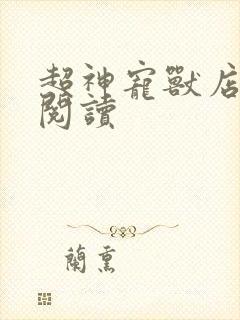 超神寵獸店
閱讀
蘭熏